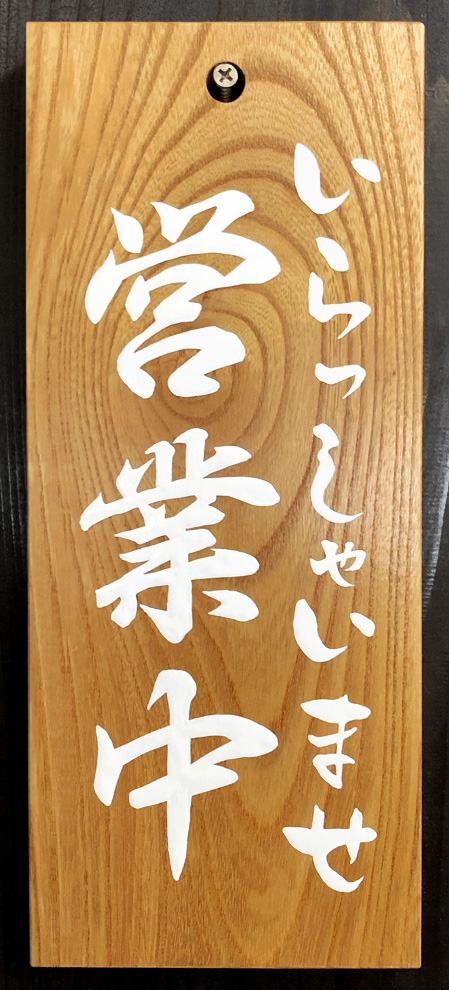 いらっしゃいませ
営業中